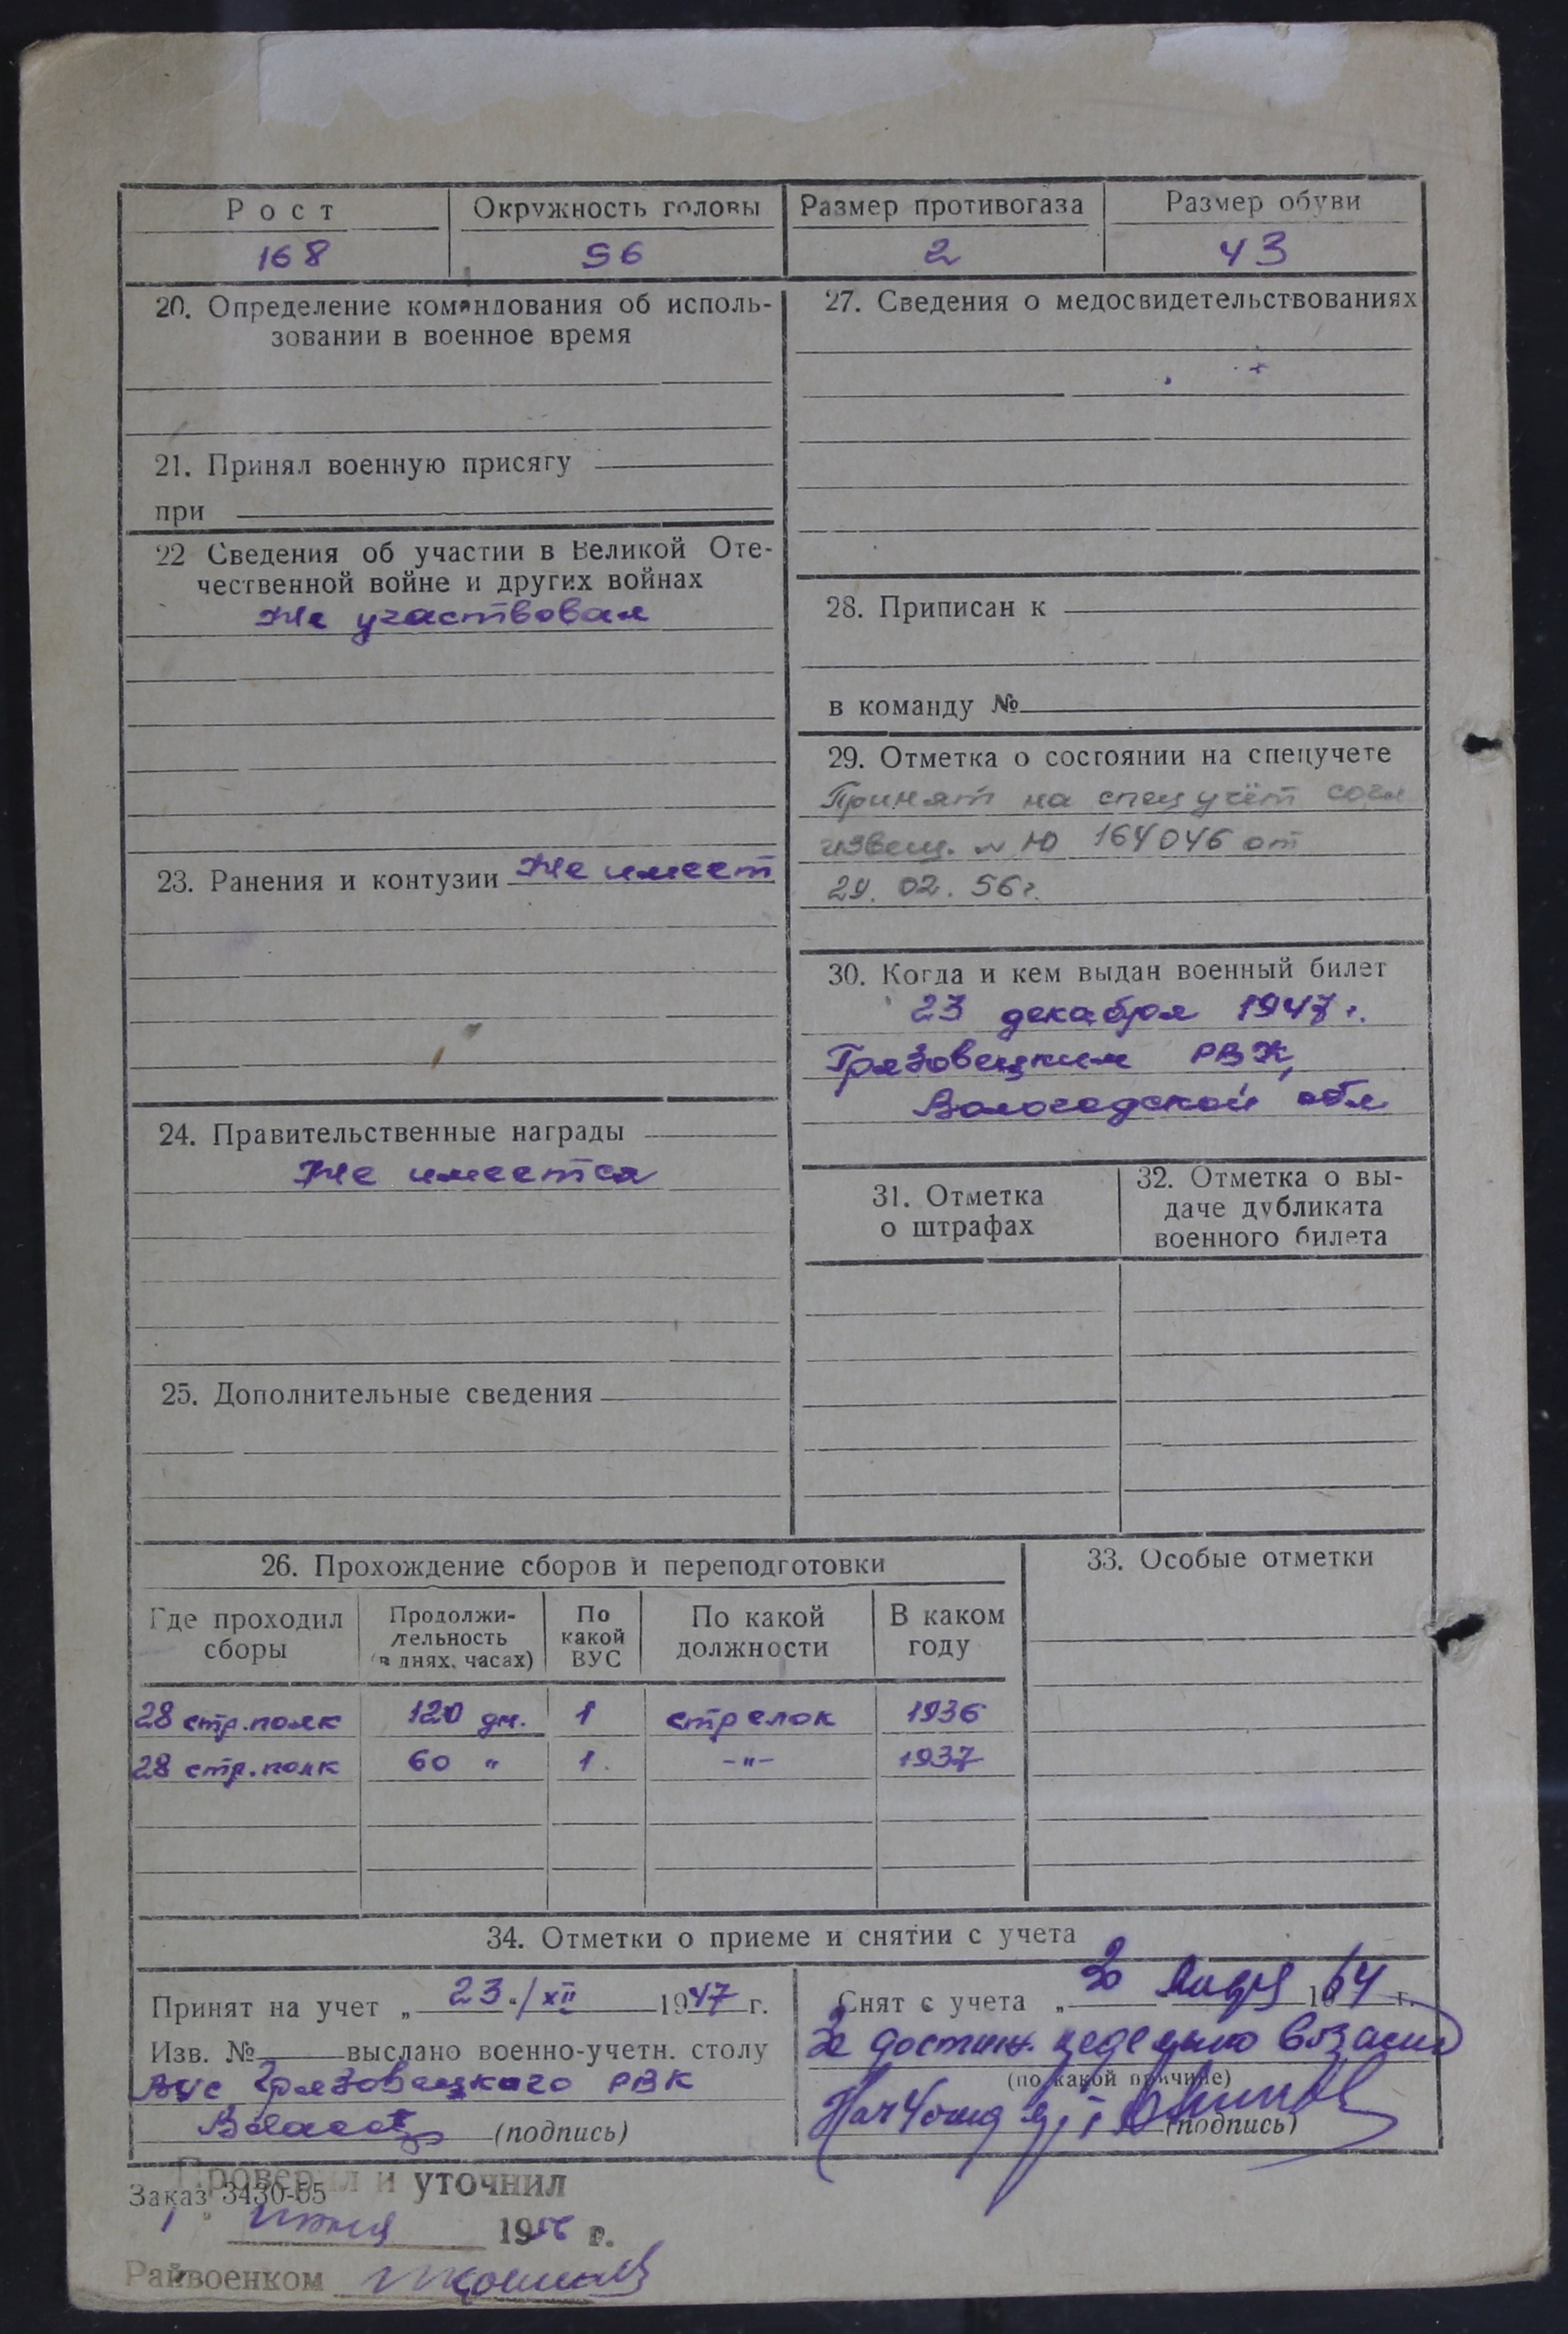 Рост
168
Окружность головы
56
Размер противогаза
2
Размер обуви
43
20. Определение командования об исполь-
зовании в военное время
21. Принял военную присягу
при
22 Сведения об участии в Великой Оте-
чественной войне и других войнах
Не участвовал
23. Ранения и контузии Не имеет
24. Правительственные награды
Не имеется
25. Дополнительные сведения
27. Сведения о медосвидетельствованиях
28. Приписан к
в команду №
29. Отметка о состоянии на спецучете
Принят на спец учёт согл
извещ. № Ю 164046 от
29. 02. 56г.
30. Когда и кем выдан военный билет
23 декабря 1947 г.
Грязовецким РВК,
Вологодской обл
31. Отметка
о штрафах
32. Отметка о вы-
даче дубликата
военного билета
26. Прохождение сборов и переподготовки
Где проходил
сборы
Продолжи-
тельность
(в днях, часах)
По
какой
ВУС
По какой
должности
В каком
году
28 стр. полк 120 дн. 1 стрелок 1936
28 стр. полк 60 " 1. -"- 1937
33. Особые отметки
34. Отметки о приеме и снятии с учета
Принят на учет „23"/XII 1947 г.
Изв. № выслано военно-учетн. столу
ВУС Грязовецкого РВК
(подпись)
Снят с учета „ 20 января 1964 г.
За достиж. предельного возраста
(по какой причине)
Нач 4 отд
(подпись)
Проверил и уточнил
Заказ 3430-65
1 " июня 1956 г.
Райвоенком